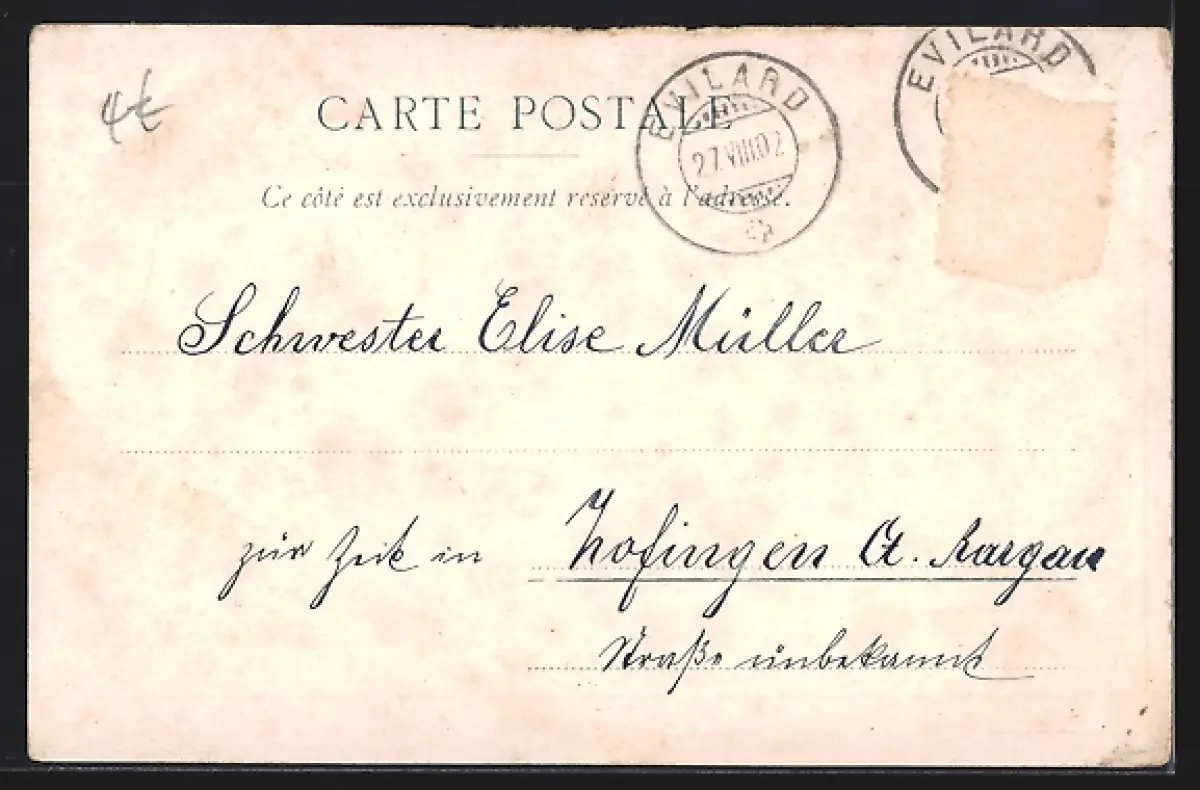 4€
CARTE POSTALE
EVILARD
27.VIII.02
EVILARD
Ce côté est exclusivement reservé à l'adresse.
Schwester Elise Müller
zur Zeit in Zofingen Ct. Aargau
Straße unbekannt